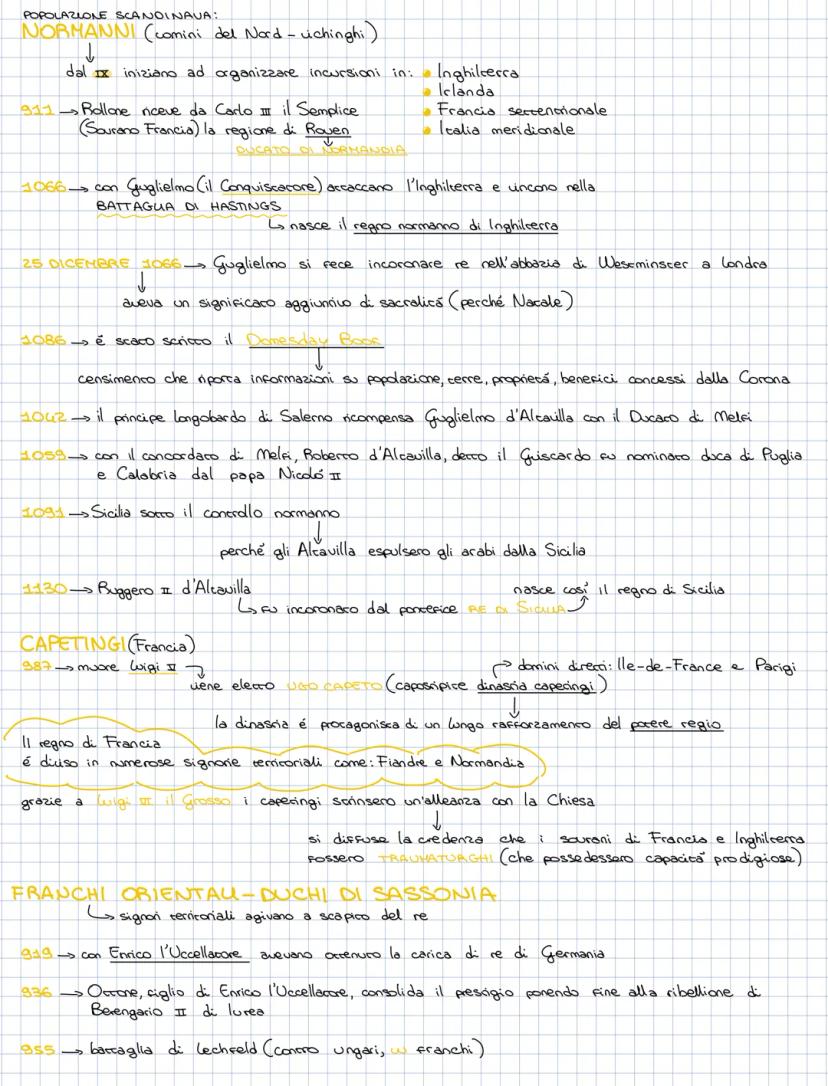 POPOLAZIONE SCANDINAVA:
NORMANNI (uomini del Nord - vichinghi)
dal IX iniziano ad organizzare incursioni in: • Inghilterra
• Irlanda
911 → Rollone riceve da Carlo III il Semplice • Francia settentrionale
(Sovrano Francia) la regione di Rouen • Italia meridionale
DUCATO DI NORMANDIA
1066 → con Guglielmo (il Conquistatore) attaccano l'Inghilterra e vincono nella
BATTAGLIA DI HASTINGS
↳ nasce il regno normanno di Inghilterra
25 DICEMBRE 1066 → Guglielmo si fece incoronare re nell'abbazia di Westminster a Londra
aveva un significato aggiuntivo di sacralitá (perché Natale)
1086 → é stato scritto il Domesday Book
censimento che riporta informazioni su popolazione, terre, proprietá, benefici concessi dalla Corona
1042 → il principe longobardo di Salerno ricompensa Guglielmo d'Altavilla con il Ducato di Melfi
1059 → con il concordato di Melfi, Roberto d'Altavilla, detto il Guiscardo fu nominato duca di Puglia
e Calabria dal papa Nicoló II
1091 → Sicilia sotto il controllo normanno
perché gli Altavilla espulsero gli arabi dalla Sicilia
1130 → Ruggero II d'Altavilla nasce cosí il regno di Sicilia
↳ fu incoronato dal pontefice RE DI SICILIA
CAPETINGI (Francia)
987 → muore Luigi V → domini diretti: Ile-de-France e Parigi
viene eletto UGO CAPETO (capostipite dinastia capetingi)
la dinastia é protagonista di un lungo rafforzamento del potere regio
Il regno di Francia
é diviso in numerose signorie territoriali come: Fiandre e Normandia
grazie a Luigi VI il Grosso i capetingi strinsero un'alleanza con la Chiesa
si diffuse la credenza che i sovrani di Francia e Inghilterra
fossero TRAUMATURGHI (che possedessero capacitá prodigiose)
FRANCHI ORIENTALI - DUCHI DI SASSONIA
↳ signori territoriali agivano a scapito del re
919 → con Enrico l'Uccellatore avevano ottenuto la carica di re di Germania
936 → Ottone, figlio di Enrico l'Uccellatore, consolida il prestigio ponendo fine alla ribellione di
Berengario II di Ivrea
955 → battaglia di Lechfeld (contro ungari, W franchi)